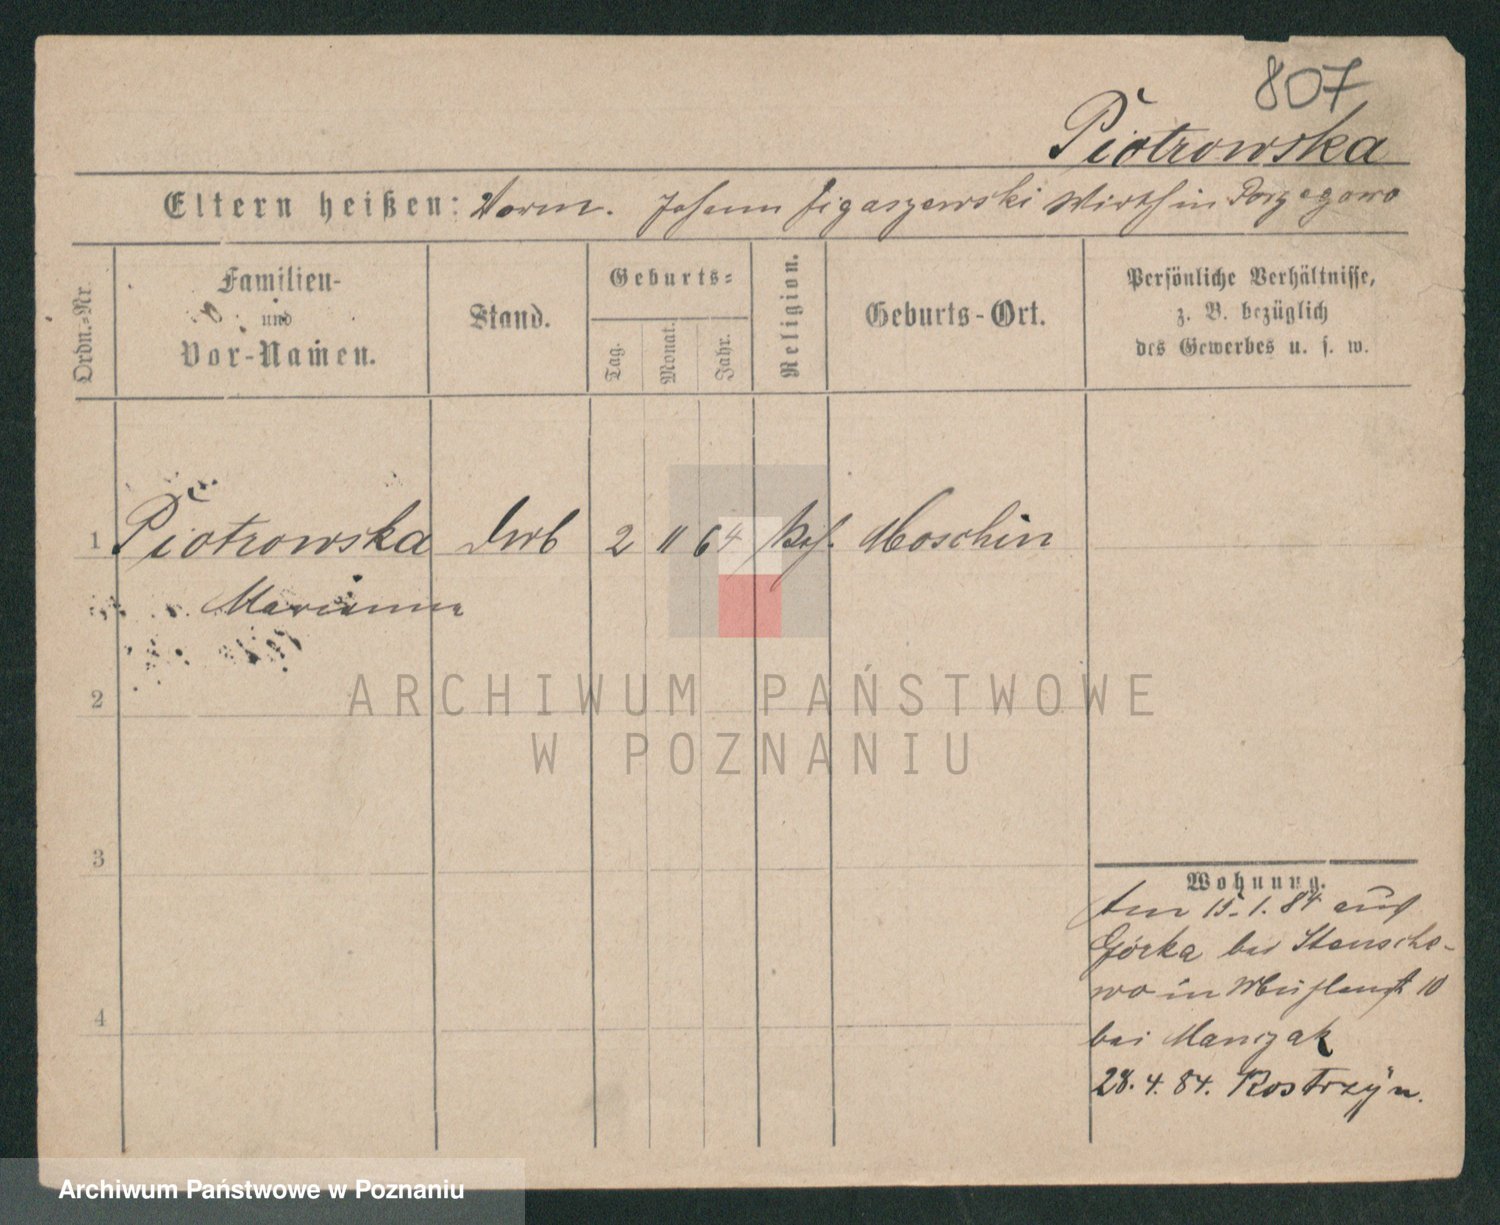 807
Piotrowska
Eltern heißen: Vorm. Johann Figaszewski Wirth in
Ordn.-Nr.
Familien-
und
Vor-Namen.
Stand.
Geburts-
Tag.
Monat.
Jahr.
Religion.
Geburts-Ort.
Persönliche Verhältnisse,
z. B. bezüglich
des Gewerbes u. s. w.
1 Piotrowska 2 11 64 Moschin
Marianna
2
ARCHIWUM PAŃSTWOWE
W POZNANIU
3
Wohnung.
Am 15.1.84 aus
Górka bei Stensche-
wo in 10
bei Manczak
4
28.4.84. Kostrzyn.
Archiwum Państwowe w Poznaniu